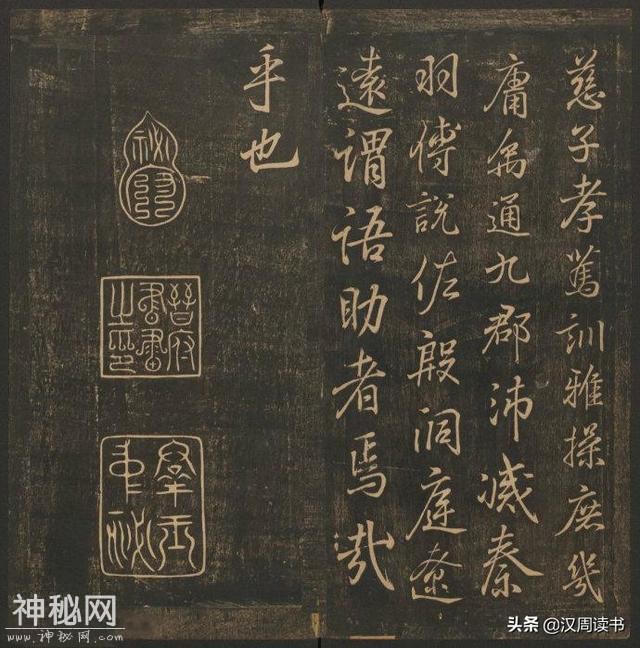 慈子孝篤訓雅操庶幾
庸禹通九郡沛滅秦
羽傅說佐殷洞庭遼
遠謂語助者焉哉
乎也
晉府書畫之印
羣玉中祕
神秘网
www.神秘网.com
头条 @汉周读书